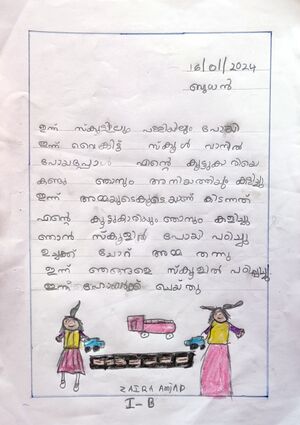 16/01/2024
ബുധൻ
ഇന്ന് സ്കൂളിലും പള്ളിയിലും പോയി
ഇന്ന് വൈകിട്ട് സ്കൂൾ വാനിൽ
പോയപ്പോൾ എന്റെ കൂട്ടുകാരിയെ
കണ്ടു ഞാനും അനിയത്തിയും കളിച്ചു
ഇന്ന് അമ്മയുടെകൂടെയാണ് കിടന്നത്
എന്റെ കൂട്ടുകാരിയും ഞാനും കളിച്ചു
ഞാൻ സ്കൂളിൽ പോയി പഠിച്ചു
ഉച്ചക്ക് ചോറ് അമ്മ തന്നു
ഇന്ന് ഞങ്ങളെ സ്കൂളിൽ പഠിപ്പിച്ചു
ഹോംവർക്ക് ചെയ്തു
ZAIRA AMJAD
I-B